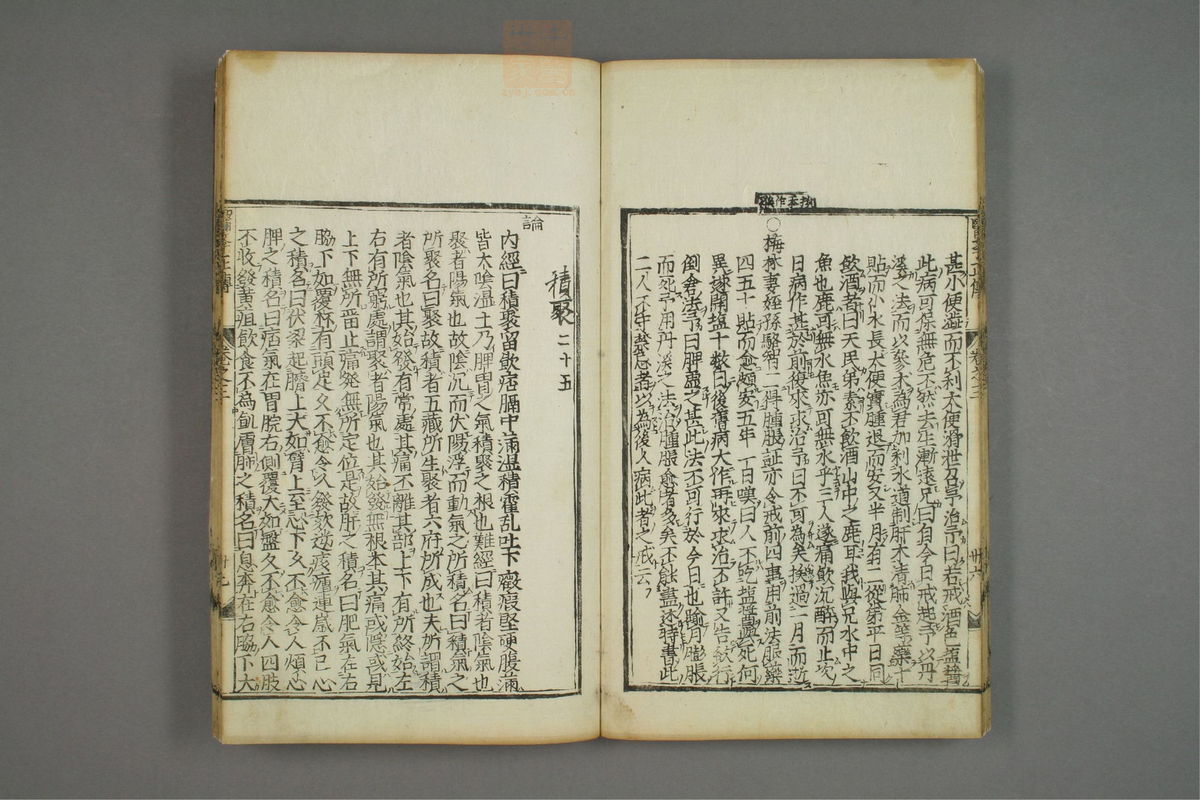 甚小便澁而不利大便滑泄召予治予曰若戒酒色塩醬
此病可保無危不然去生漸遠兄曰自今日戒起予以丹
溪之法而以參朮為君加利水道制肝木清肺金等藥十
貼而小水長大便實腫退而安又半月有二從弟平日同
飲酒者曰天民弟素不飲酒山中之鹿耳我與兄水中之
魚也鹿可無水魚亦可無水乎三人遂痛飲沉醉而止次
日病作甚於前復來求治予曰不可為矣挨過一月而逝
〇梅林妻姪孫駱智二得腫脹証亦令戒前四事用前法服藥
四五十貼而愈頗安五年一日嘆曰人不吃塩醬與死何
異遂開塩十數日後舊病大作再來求治不許又告欲行
倒倉法予曰脾虛之甚此法不可行於今日也踰月膨脹
而死予用丹溪之法治腫脹愈者多矣不能盡述特書此
二人不守禁忌者以為後人病此者之戒云
積聚 二十五
論
內經曰積聚留飲痞膈中滿濕積霍乱吐下癥瘕堅硬腹滿
皆太陰濕土乃脾胃之氣積聚之根也難經曰積者陰氣也
聚者陽氣也故陰沉而伏陽浮而動氣之所積名曰積氣之
所聚名曰聚故積者五藏所生聚者六府所成也夫所謂積
者陰氣也其始發有常處其痛不離其部上下有所終始左
右有所窮處謂聚者陽氣也其始發無根本其痛或隱或見
上下無所畱止痛発無所定位是故肝之積名曰肥氣在右
脇下如覆杯有頭足久不愈令人發欬逆㾬瘧連歲不已心
之積名曰伏梁起臍上大如臂上至心下久不愈令人煩心
脾之積名曰痞氣在胃脘右側覆大如盤久不愈令人四肢
不收發黃疸飲食不為肌膚肺之積名曰息奔在右脇下大